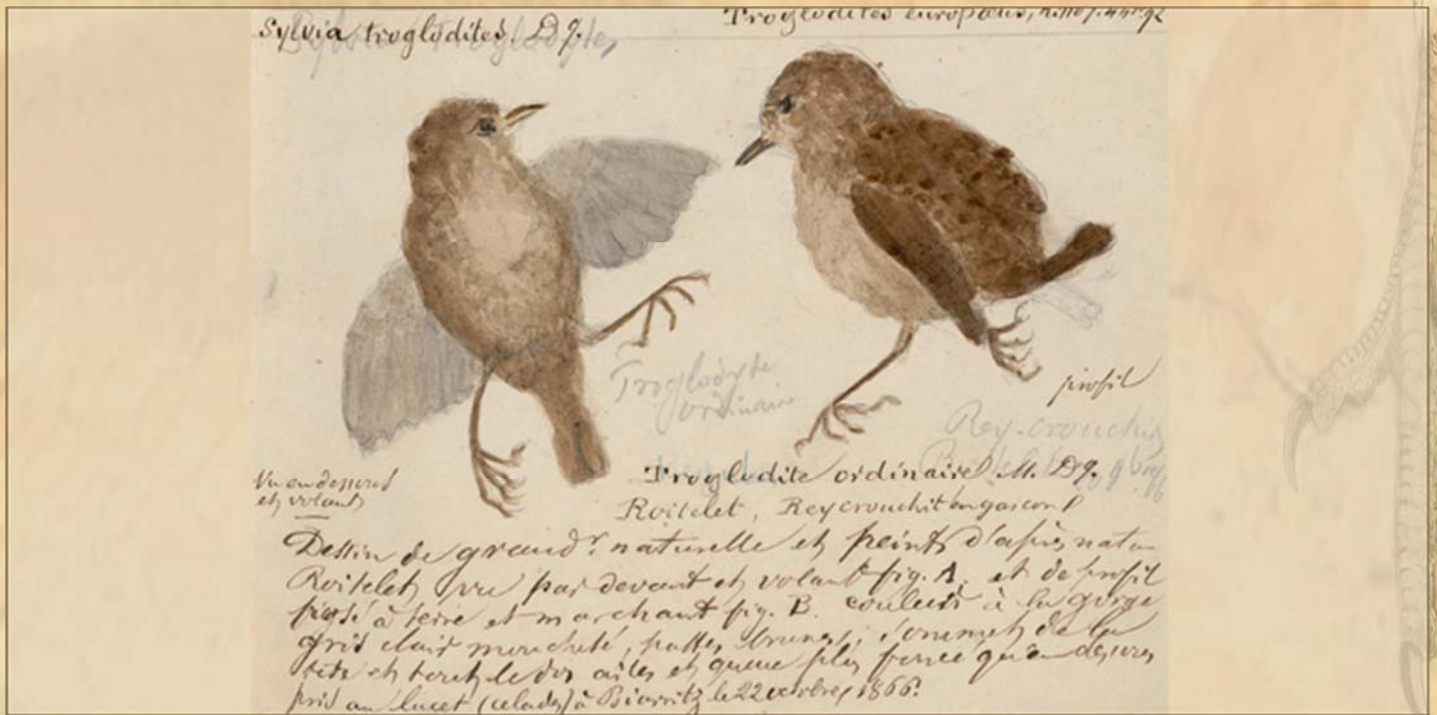 Sylvia troglodites. Dg.
Troglodites europæus,
Troglodyte
ordinaire
profil
Rey-crouchit
Vu en dessous
et volant
Troglodite ordinaire M. Dg.
Roitelet, Reycrouchit en gascon
Dessin de grandr. naturelle et peint d'après natu
Roitelet vu par devant et volant fig. A, et de profil
posé à terre et marchant fig. B. couleur à la gorge
gris clair moucheté, pattes brunes; sommet de la
tête et tout le dos ailes et queue plus foncé qu'en dessous
pris au lucet (celada) à Biarritz le 22 octobre, 1866.